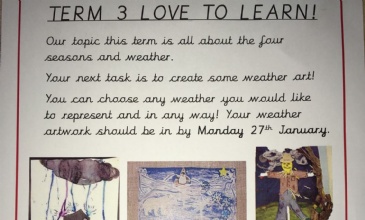 TERM 3 LOVE TO LEARN!
Our topic this term is all about the four
seasons and weather.
Your next task is to create some weather art!
You can choose any weather you would like
to represent and in any way! Your weather
artwork should be in by Monday 27th January.